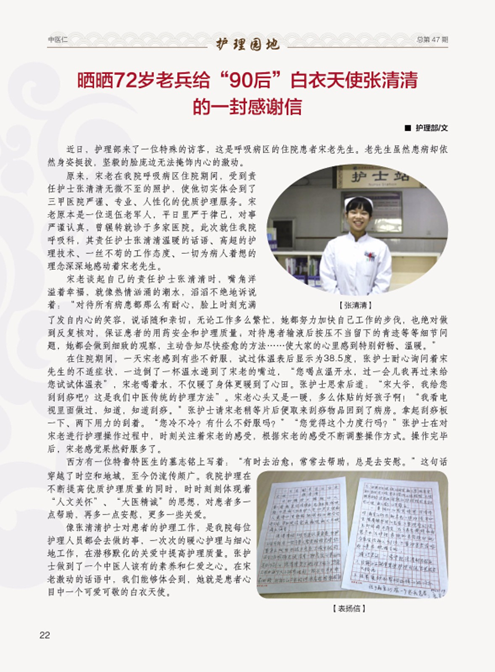 中医仁
护理园地
总第 47 期
晒晒72岁老兵给“90后”白衣天使张清清
的一封感谢信
■ 护理部/文
近日，护理部来了一位特殊的访客，这是呼吸病区的住院患者宋老先生。老先生虽然患病却依
然身姿挺拔，坚毅的脸庞边无法掩饰内心的激动。
原来，宋老在我院呼吸病区住院期间，受到责
任护士张清清无微不至的照护，使他切实体会到了
三甲医院严谨、专业、人性化的优质护理服务。宋
老原本是一位退伍老军人，平日里严于律己，对事
严谨认真，曾辗转就诊于多家医院。此次就住我院
呼吸科，其责任护士张清清温暖的话语、高超的护
理技术、一丝不苟的工作态度、一切为病人着想的
理念深深地感动着宋老先生。
宋老谈起自己的责任护士张清清时，嘴角洋
溢着幸福，就像热情汹涌的潮水，滔滔不绝地诉说
着：“对待所有病患都那么有耐心，脸上时刻充满
护士站
【张清清】
了发自内心的笑容，说话随和亲切，无论工作多么繁忙，她都努力加快自己工作的步伐，也绝对做
到反复核对，保证患者的用药安全和护理质量，对待患者输液后按压不当留下的青迹等等细节问
题，她都会做到细致的观察，主动告知尽快痊愈的方法……使大家的心里感到特别舒畅、温暖。”
在住院期间，一天宋老感到有些不舒服，试过体温表后显示为38.5度，张护士耐心询问着宋
先生的不适症状，一边倒了一杯温水递到了宋老的嘴边，“您喝点温开水，过一会儿我再过来给
您试试体温表”，宋老喝着水，不仅暖了身体更暖到了心田。张护士思索后道：“宋大爷，我给您
刮刮痧吧？这是我们中医传统的护理方法”。宋老心头又是一暖，多么体贴的好孩子啊！“我看电
视里面做过，知道，知道刮痧。”张护士请宋老稍等片后便取来刮痧物品回到了病房。拿起刮痧板
一下、两下用力的刮着。“您冷不冷？有什么不舒服吗？”“您觉得这个力度行吗？”张护士在对
宋老进行护理操作过程中，时刻关注着宋老的感受，根据宋老的感受不断调整操作方式。操作完毕
后，宋老感觉果然舒服多了。
西方有一位特鲁特医生的墓志铭上写着：“有时去治愈；常常去帮助；总是去安慰。”这句话
穿越了时空和地域，至今仍流传颇广。我院护理在
不断提高优质护理质量的同时，时时刻刻体现着
“人文关怀”、“大医精诚”的思想，对患者多一
点帮助，再多一点安慰，更多一些关爱。
像张清清护士对患者的护理工作，是我院每位
护理人员都会去做的事，一次次的暖心护理与细心
地工作，在潜移默化的关爱中提高护理质量。张护
士做到了一个中医人该有的素养和仁爱之心。在宋
老激动的话语中，我们能够体会到，她就是患者心
目中一个可爱可敬的白衣天使。
【表扬信】
22